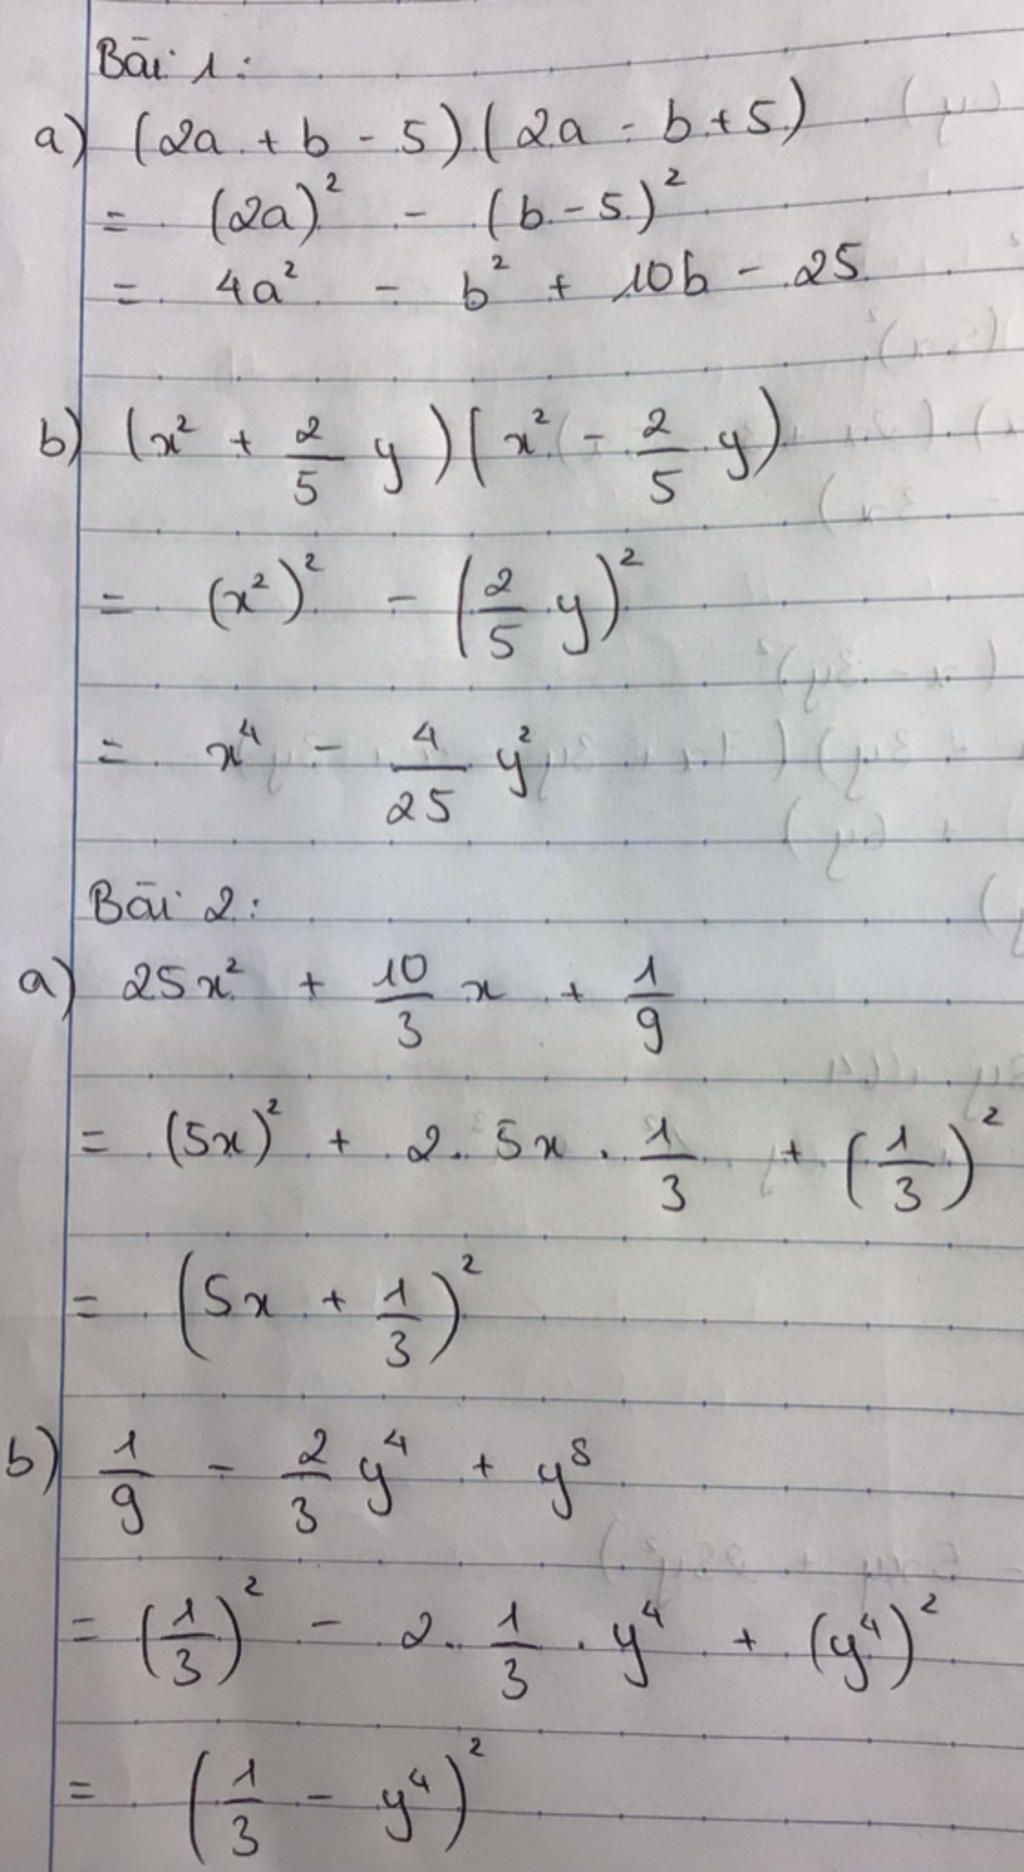 Bài 1:
a) (2a + b - 5)(2a - b + 5)
= (2a)² - (b - 5)²
= 4a² - b² + 10b - 25
b) (x² + 2/5 y)(x² - 2/5 y)
= (x²)² - (2/5 y)²
= x⁴ - 4/25 y²
Bài 2:
a) 25x² + 10/3 x + 1/9
= (5x)² + 2. 5x . 1/3 + (1/3)²
= (5x + 1/3)²
b) 1/9 - 2/3 y⁴ + y⁸
= (1/3)² - 2. 1/3 . y⁴ + (y⁴)²
= (1/3 - y⁴)²